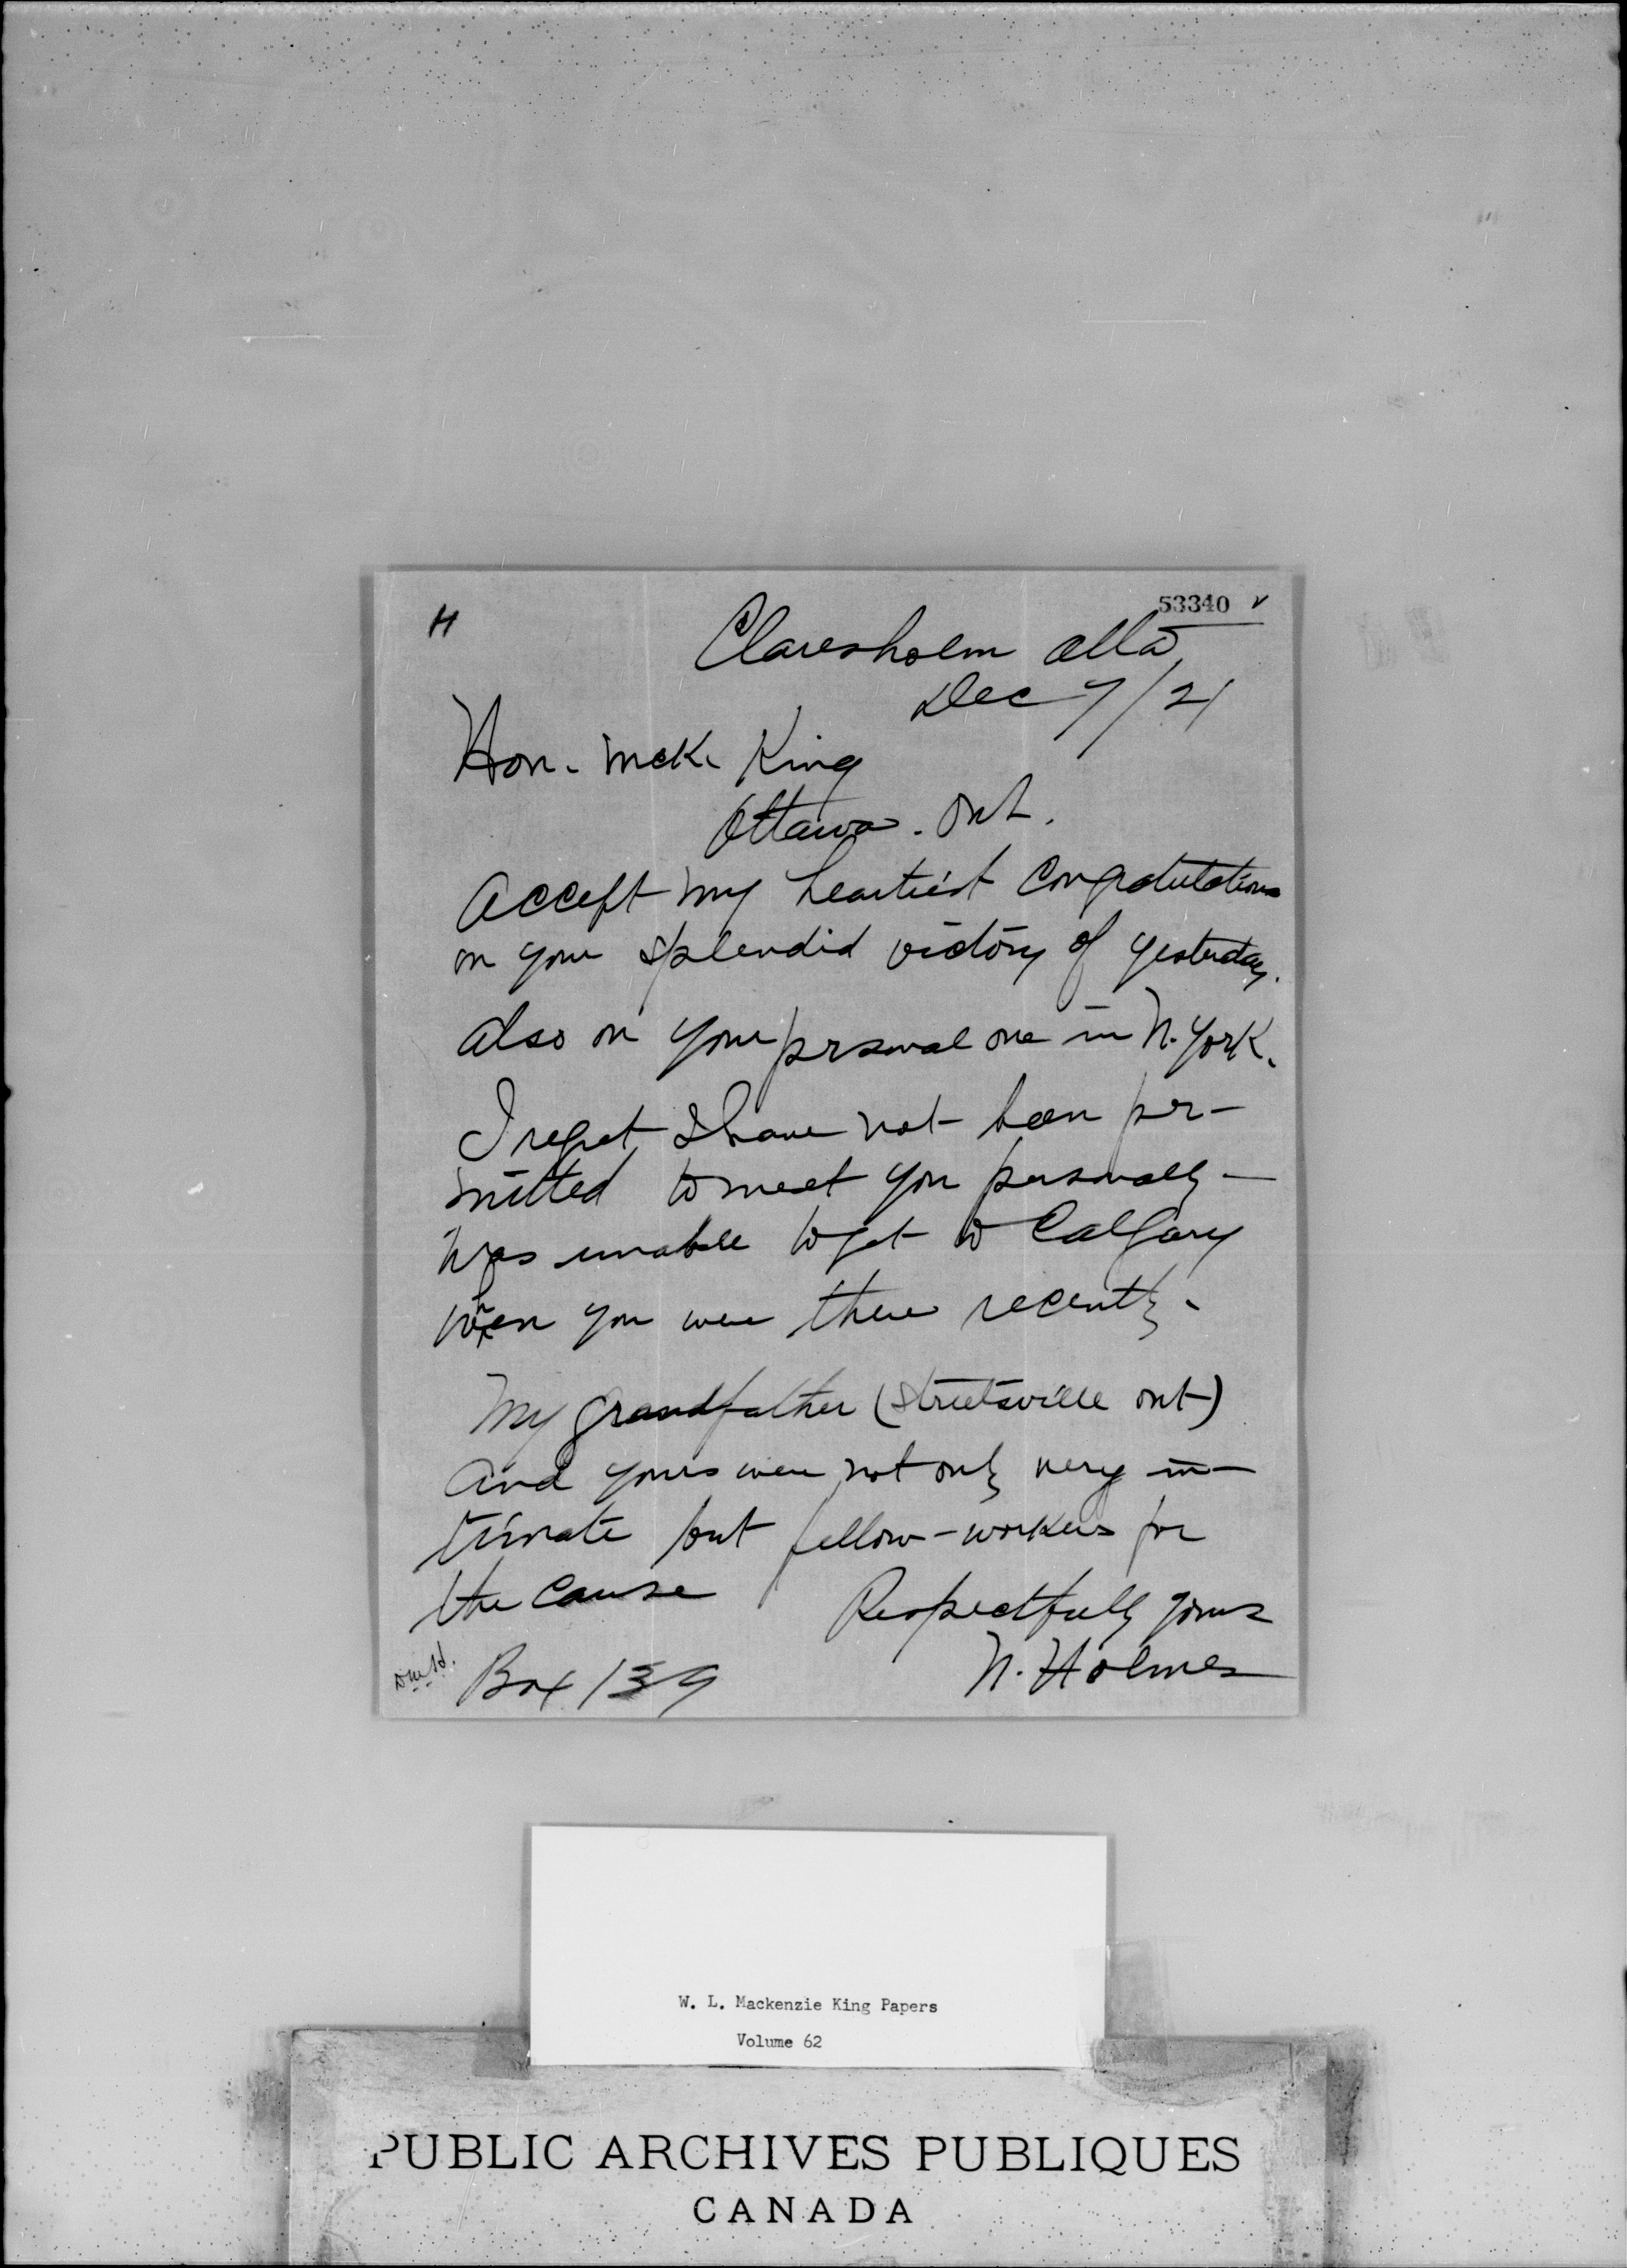 53340 v
H
Claresholm Alta
Dec 7/21
Hon. McK. King
Ottawa. Ont.
Accept my heartiest Congratulations
on your splendid victory of yesterday.
also on your prsonal one in N. York.
I regret I have not been per-
mitted to meet you personally -
Was unable to get to Calgary
when you were there recently.
My Grandfather (Streetsville Ont)
and yours were not only very in-
timate but fellow-workers for
the Cause
Respectfully yours
N. Holmes
Box 139
W. L. Mackenzie King Papers
Volume 62
PUBLIC ARCHIVES PUBLIQUES
CANADA